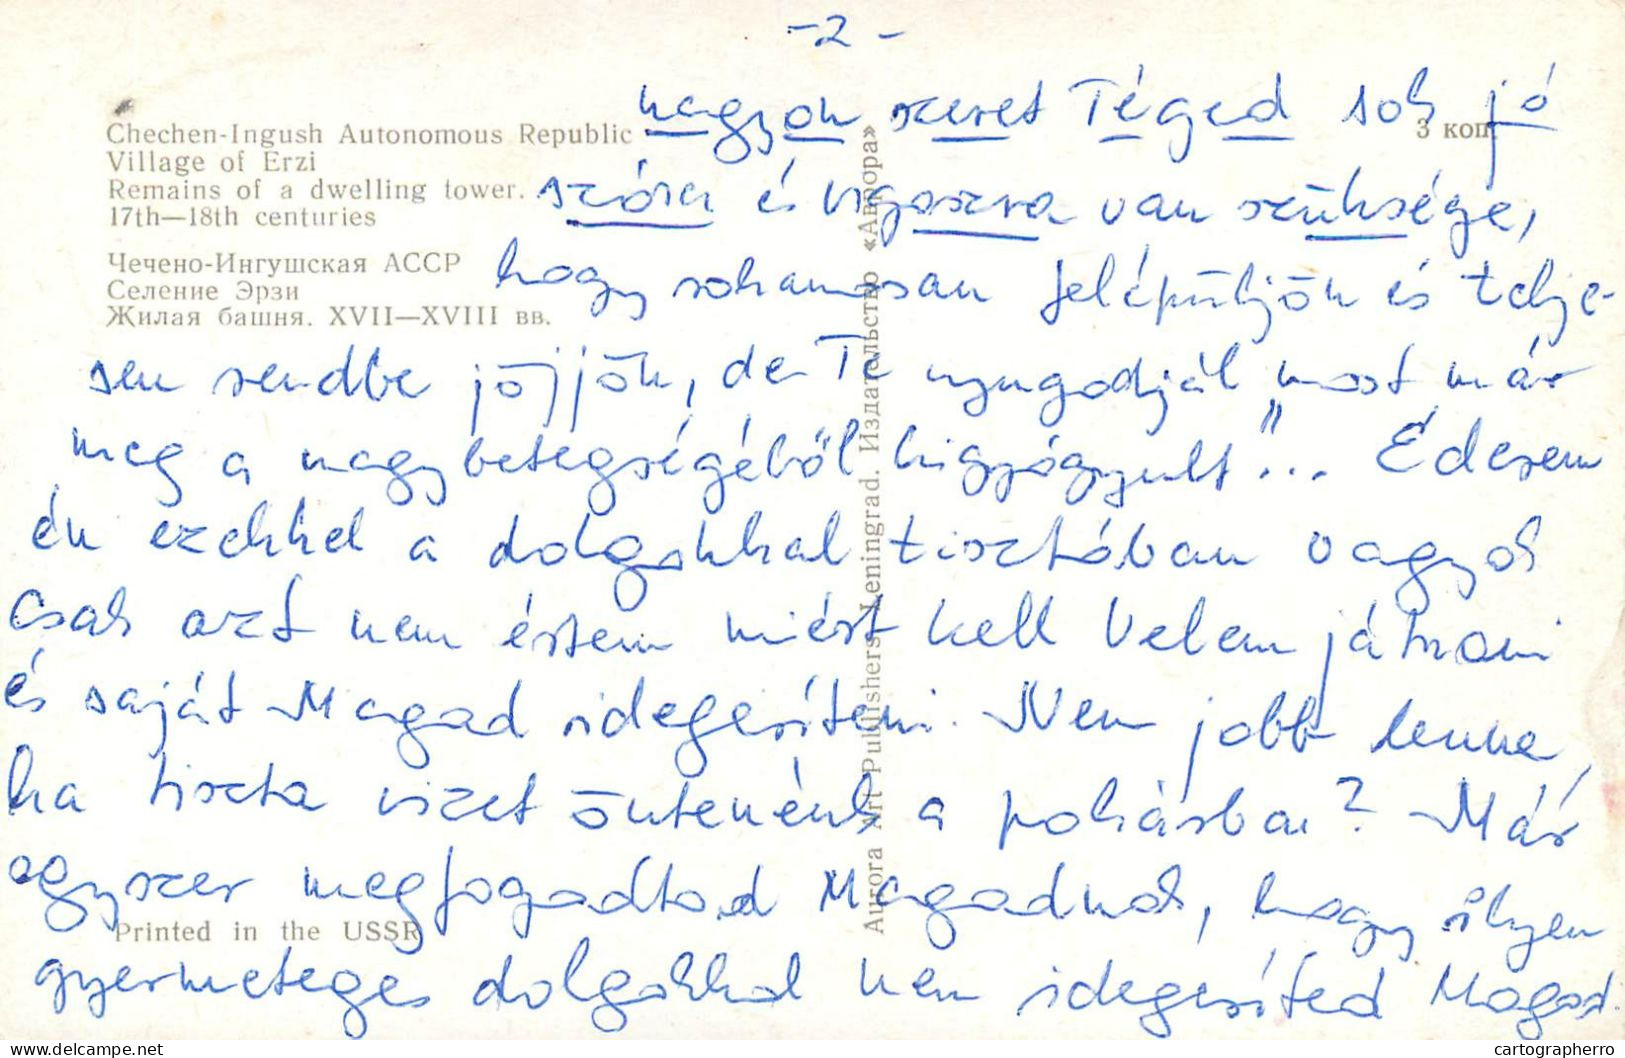 -2-
nagyon szeret Téged sok jó
3 коп.
Chechen-Ingush Autonomous Republic
Village of Erzi
Remains of a dwelling tower.
17th—18th centuries
szóra és vigaszra van szüksége,
Чечено-Ингушская АССР
Селение Эрзи
Жилая башня. XVII—XVIII вв.
hogy rohamosan felépüljön és telje-
sen rendbe jöjjön, de Te nyugodjál most már
meg a nagybetegségéből kigyógyult"... Édesem
én ezekkel a dolgokkal tisztában vagyok
csak azt nem értem miért kell Velem játszani
és saját Magad idegesíteni. Nem jobb lenne,
ha tiszta vizet öntenénk a pohárba? Már
egyszer megfogadtad Magadnak, hogy ilyen
gyermeteges dolgokkal nem idegesíted Magad.
Printed in the USSR
Aurora Art Publishers. Leningrad. Издательство «Аврора»
https://www.delcampe.net
cartographerro